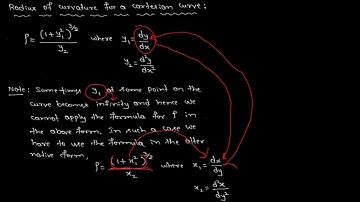 Radius of curvature for a cartesian curve:
ρ = (1 + y₁²)^3/2 / y₂ where y₁ = dy/dx
y₂ = d²y/dx²
Note: Sometimes y₁ at some point on the
curve becomes infinity and hence we
cannot apply the formula for ρ in
the above form. In such a case we
have to use the formula in the alter
native form,
ρ = (1 + x₁²)^3/2 / x₂ where x₁ = dx/dy
x₂ = d²x/dy²